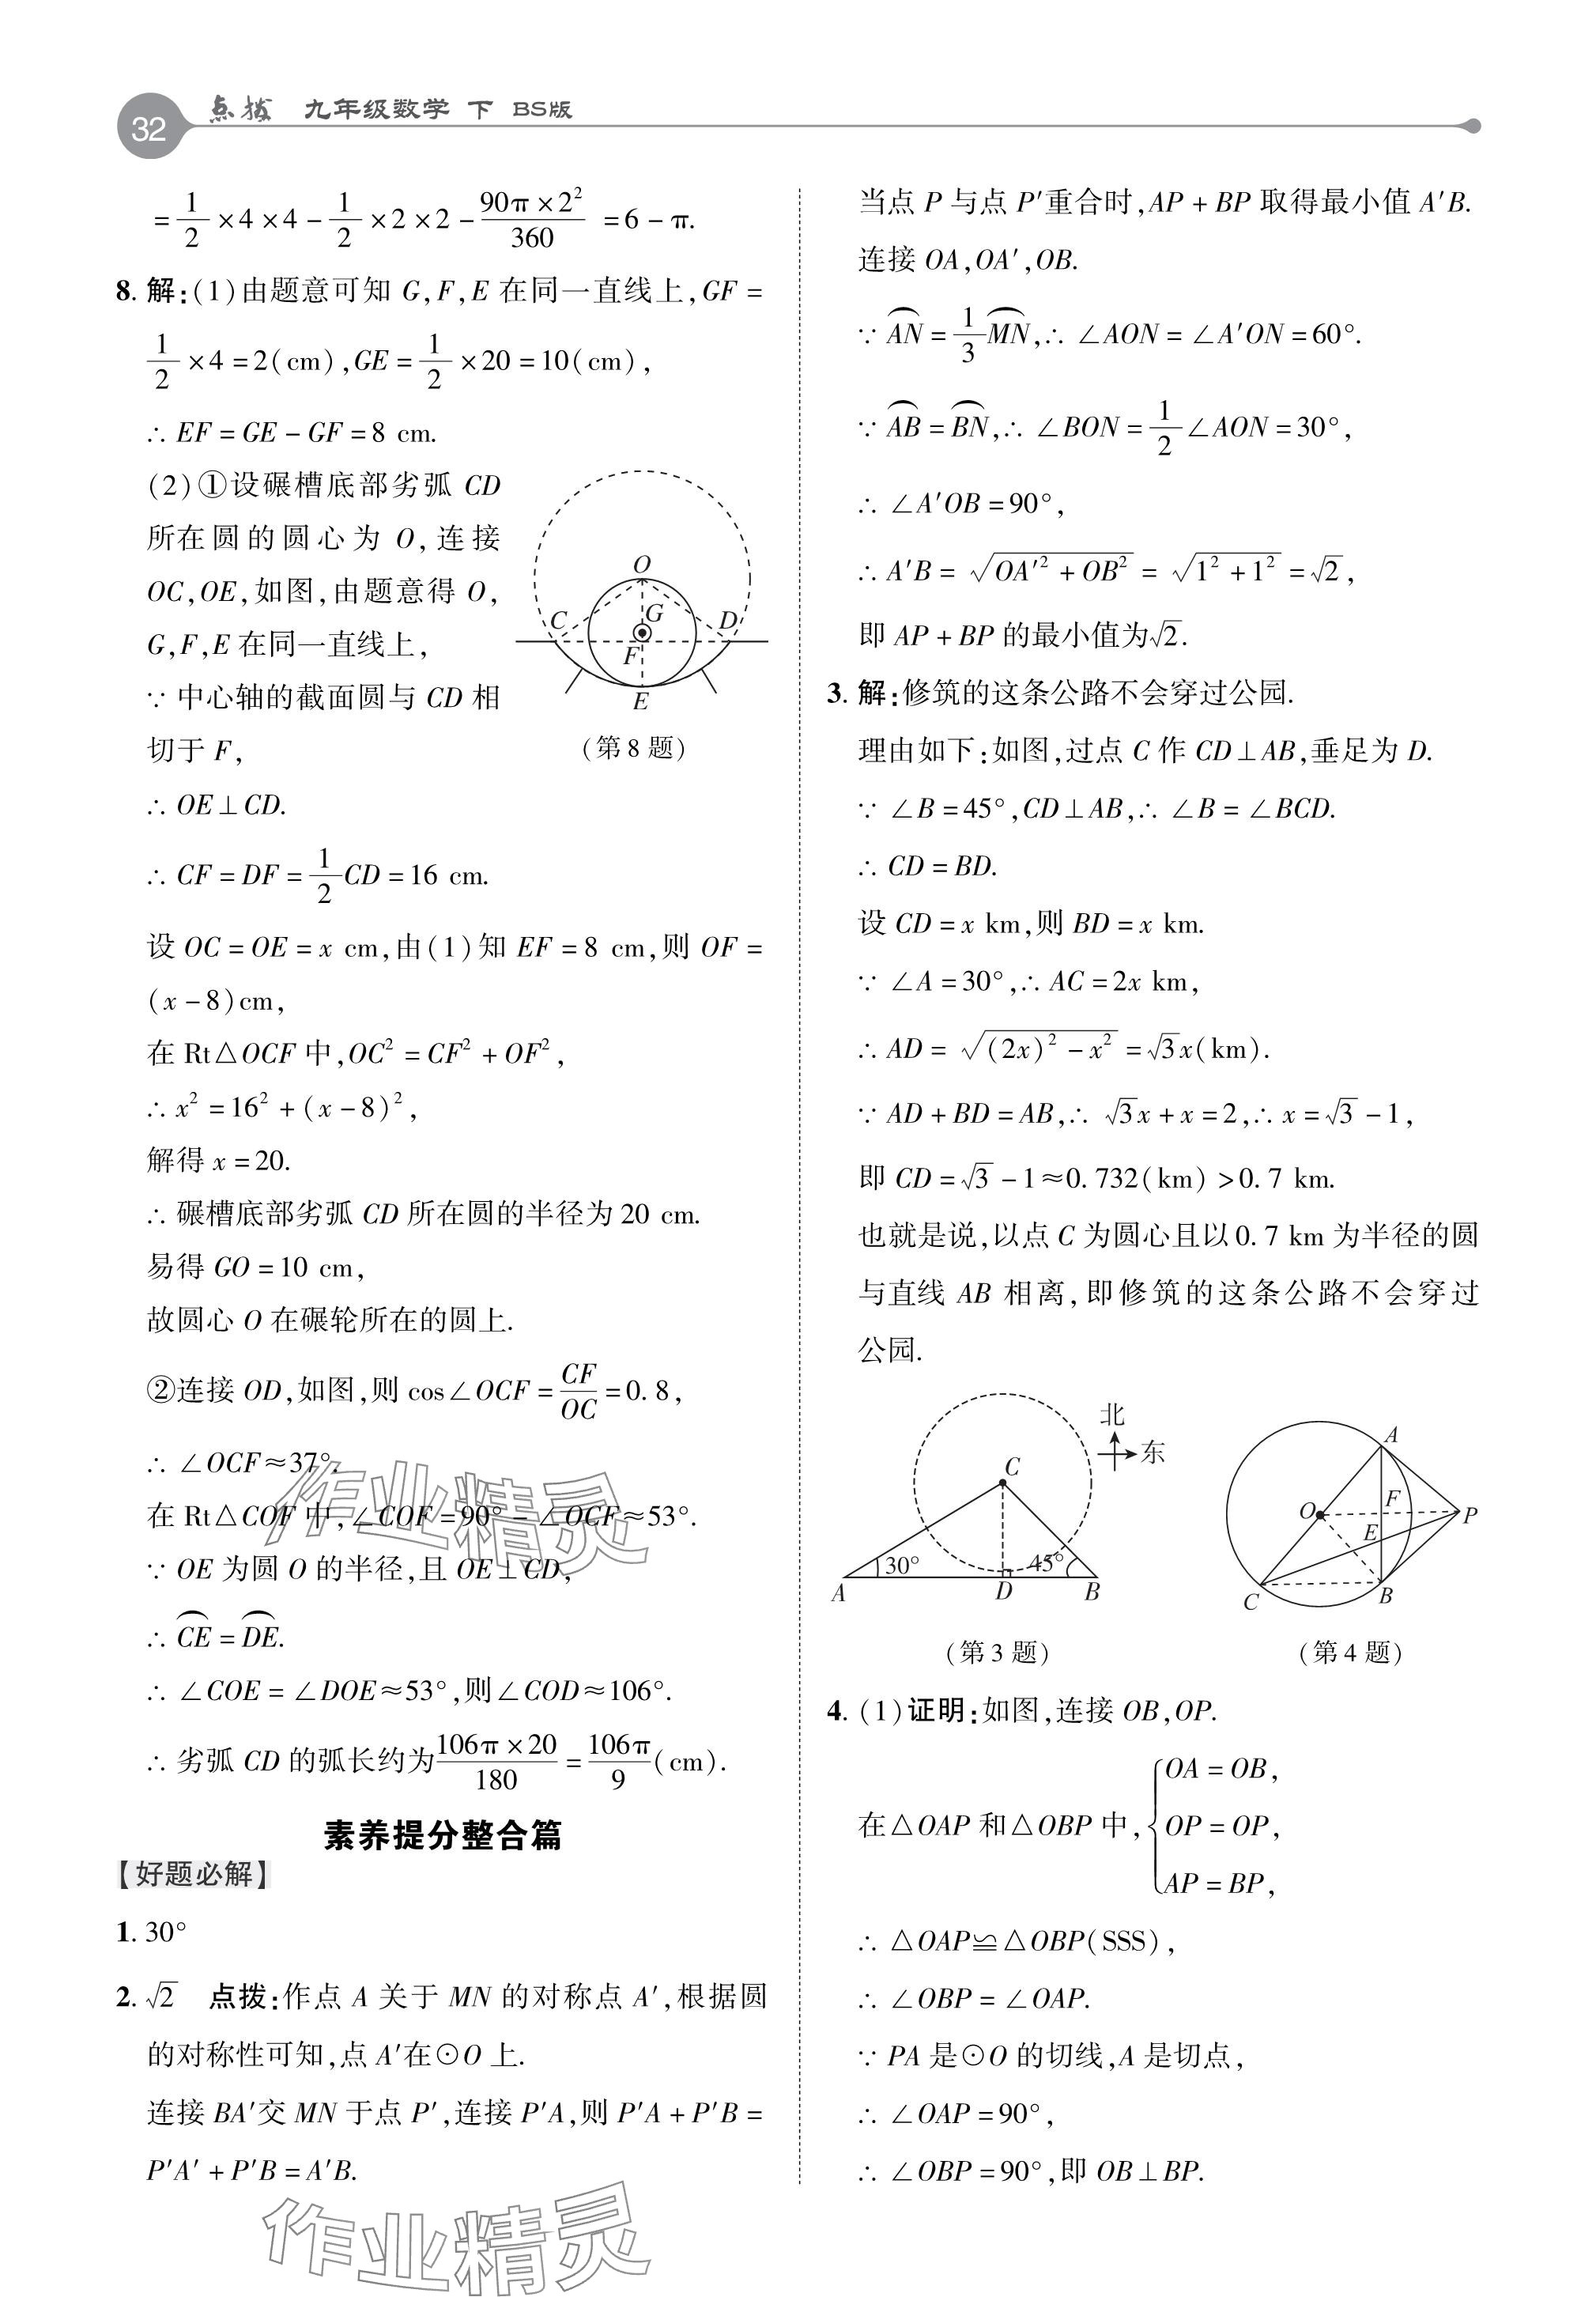 32 点拨 九年级数学 下 BS版
=1/2×4×4-1/2×2×2-90π×2²/360=6-π.
8. 解:(1)由题意可知 G,F,E 在同一直线上,GF=
1/2×4=2(cm),GE=1/2×20=10(cm),
∴ EF=GE-GF=8 cm.
(2)①设碾槽底部劣弧 CD
所在圆的圆心为 O,连接
OC,OE,如图,由题意得 O,
G,F,E 在同一直线上,
∵ 中心轴的截面圆与 CD 相
切于 F,
O
C
G
D
F
E
(第8题)
∴ OE⊥CD.
∴ CF=DF=1/2CD=16 cm.
设 OC=OE=x cm,由(1)知 EF=8 cm,则 OF=
(x-8)cm,
在 Rt△OCF 中,OC²=CF²+OF²,
∴ x²=16²+(x-8)²,
解得 x=20.
∴ 碾槽底部劣弧 CD 所在圆的半径为 20 cm.
易得 GO=10 cm,
故圆心 O 在碾轮所在的圆上.
②连接 OD,如图,则 cos∠OCF=CF/OC=0.8,
∴ ∠OCF≈37°.
在 Rt△COF 中,∠COF=90°-∠OCF≈53°.
∵ OE 为圆 O 的半径,且 OE⊥CD,
∴ ⌒CE=⌒DE.
∴ ∠COE=∠DOE≈53°,则∠COD≈106°.
∴ 劣弧 CD 的弧长约为106π×20/180=106π/9(cm).
素养提分整合篇
【好题必解】
1. 30°
2. √2 点拨:作点 A 关于 MN 的对称点 A′,根据圆
的对称性可知,点 A′在⊙O 上.
连接 BA′交 MN 于点 P′,连接 P′A,则 P′A+P′B=
P′A′+P′B=A′B.
当点 P 与点 P′重合时,AP+BP 取得最小值 A′B.
连接 OA,OA′,OB.
∵ ⌒AN=1/3⌒MN,∴ ∠AON=∠A′ON=60°.
∵ ⌒AB=⌒BN,∴ ∠BON=1/2∠AON=30°,
∴ ∠A′OB=90°,
∴ A′B=√(OA′²+OB²)=√(1²+1²)=√2,
即 AP+BP 的最小值为√2.
3. 解:修筑的这条公路不会穿过公园.
理由如下:如图,过点 C 作 CD⊥AB,垂足为 D.
∵ ∠B=45°,CD⊥AB,∴ ∠B=∠BCD.
∴ CD=BD.
设 CD=x km,则 BD=x km.
∵ ∠A=30°,∴ AC=2x km,
∴ AD=√((2x)²-x²)=√3x(km).
∵ AD+BD=AB,∴ √3x+x=2,∴ x=√3-1,
即 CD=√3-1≈0.732(km)>0.7 km.
也就是说,以点 C 为圆心且以 0.7 km 为半径的圆
与直线 AB 相离,即修筑的这条公路不会穿过
公园.
北
东
C
30°
45°
A
D
B
(第3题)
A
O
F
P
E
C
B
(第4题)
4. (1)证明:如图,连接 OB,OP.
在△OAP 和△OBP 中,{OA=OB,
OP=OP,
AP=BP,
∴ △OAP≌△OBP(SSS),
∴ ∠OBP=∠OAP.
∵ PA 是⊙O 的切线,A 是切点,
∴ ∠OAP=90°,
∴ ∠OBP=90°,即 OB⊥BP.
作业精灵
作业精灵